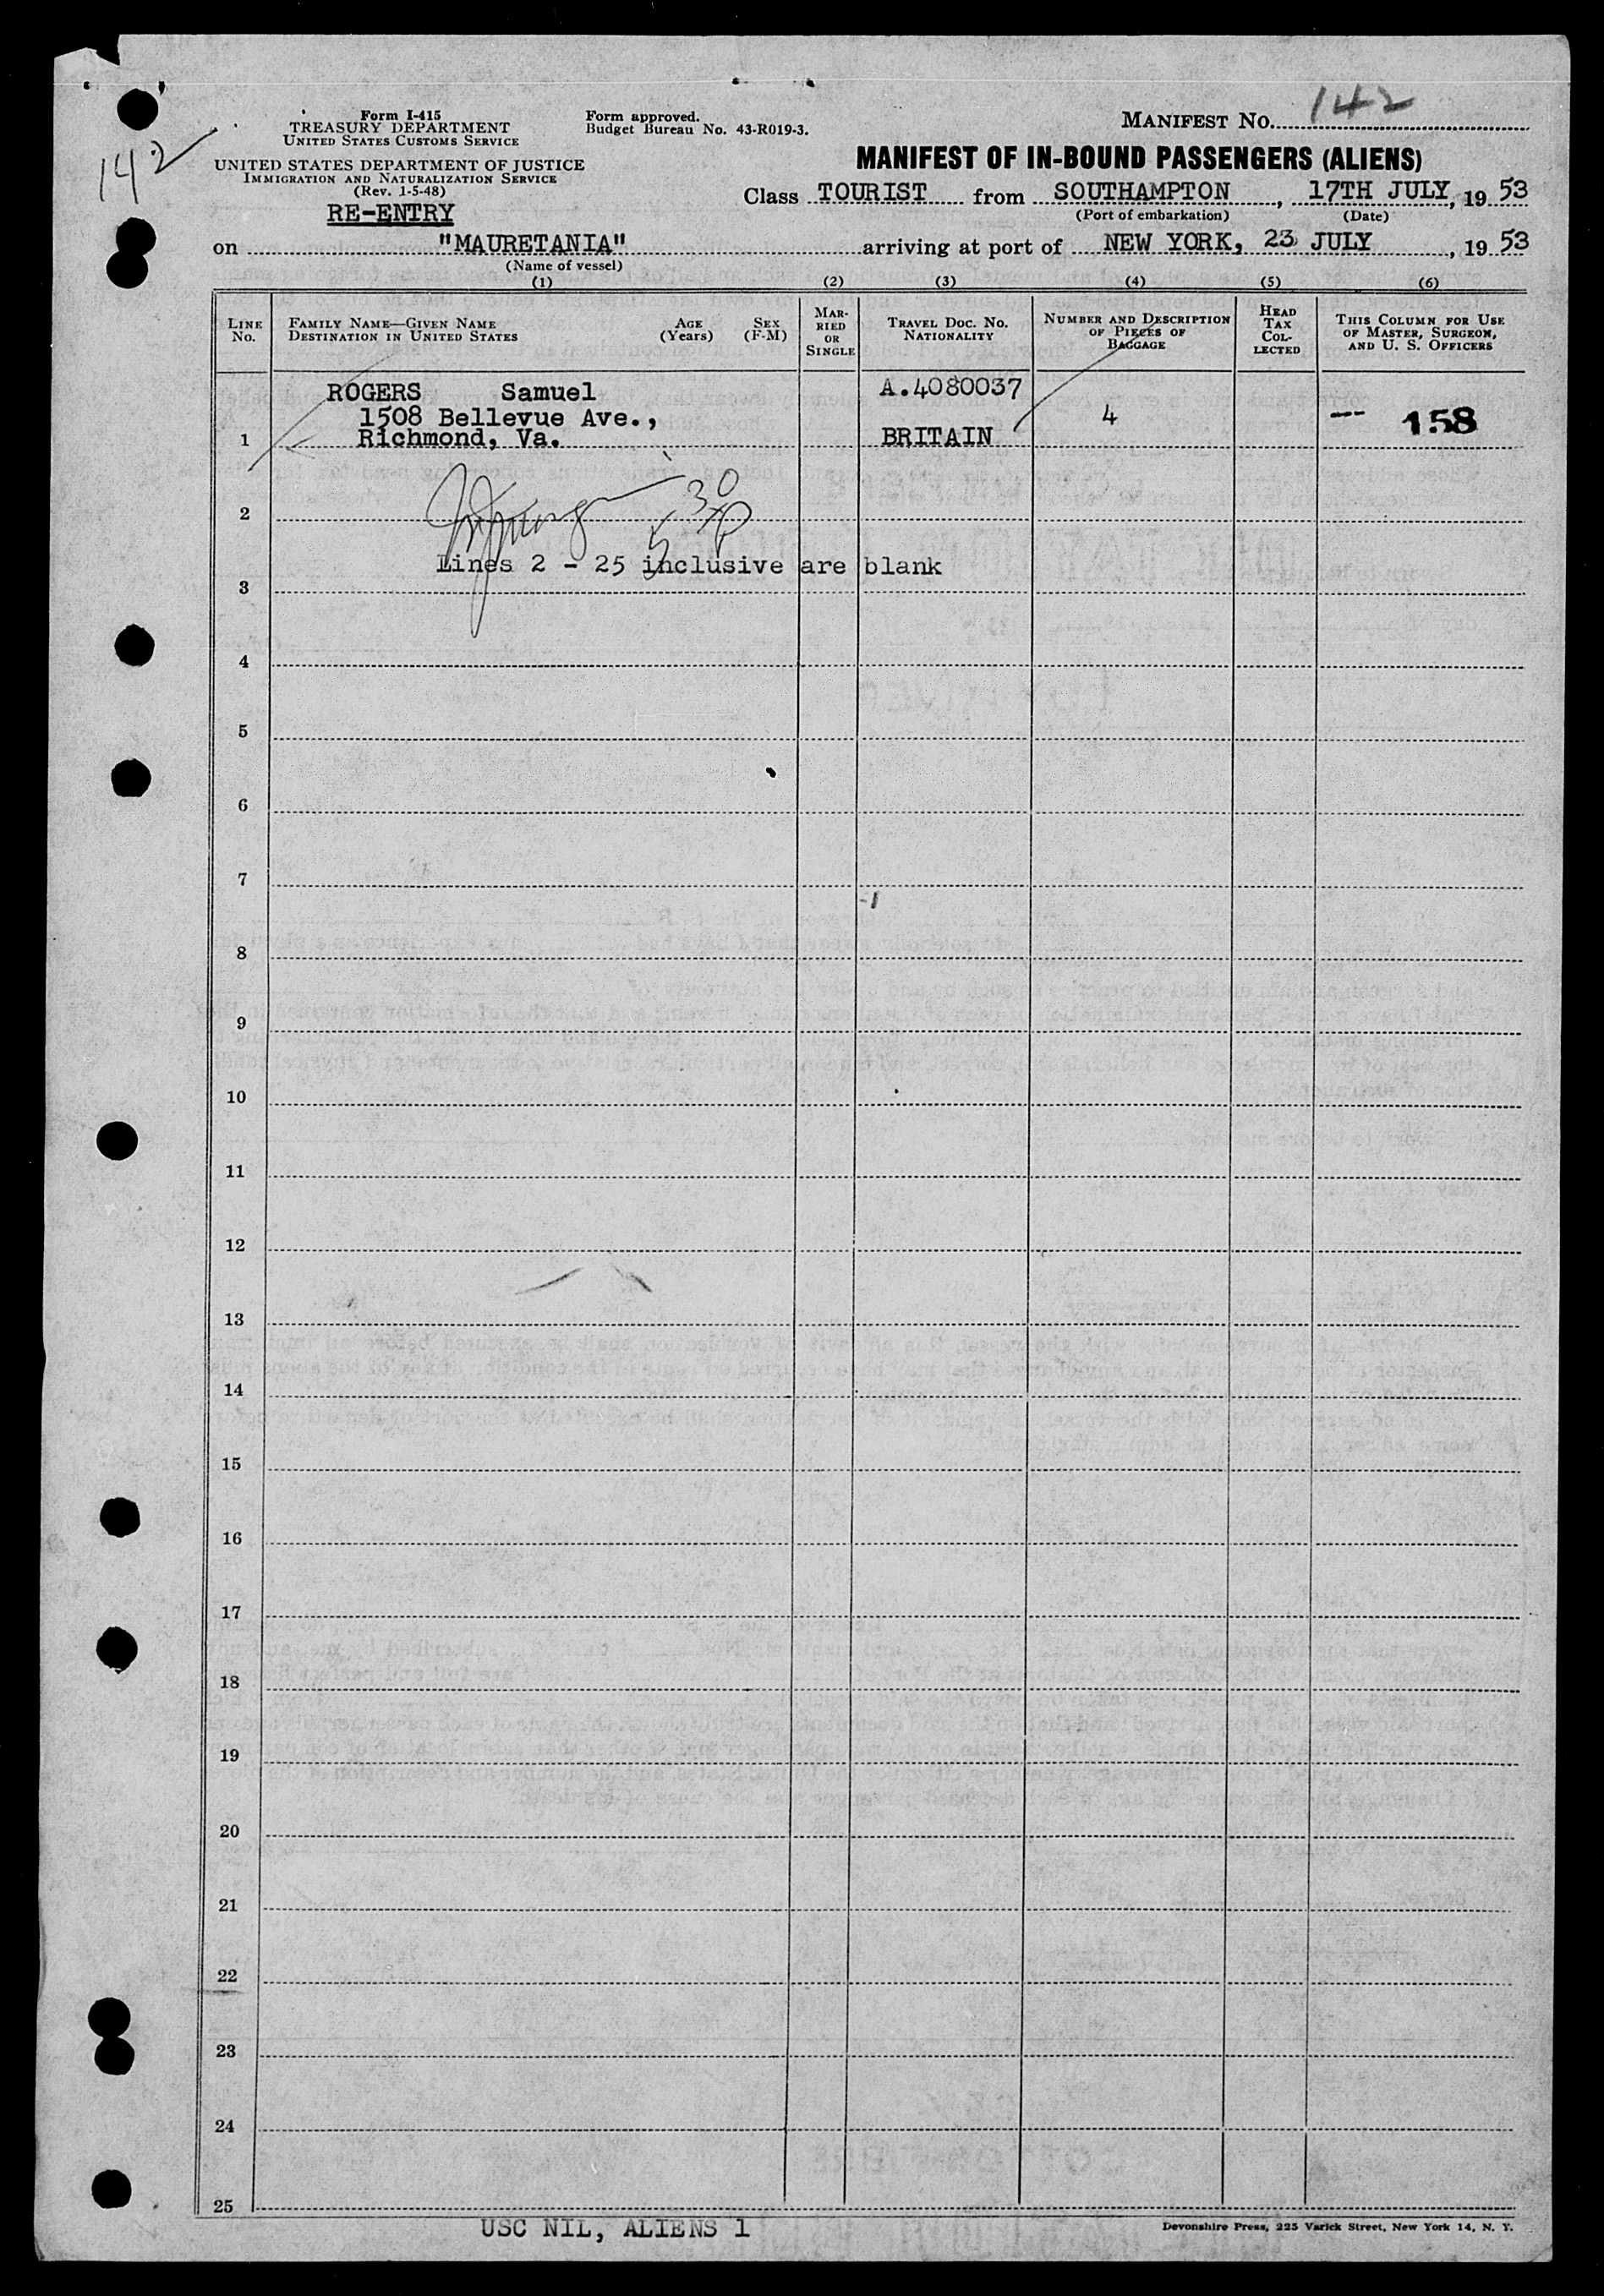 142
Form I-415
TREASURY DEPARTMENT
UNITED STATES CUSTOMS SERVICE
UNITED STATES DEPARTMENT OF JUSTICE
IMMIGRATION AND NATURALIZATION SERVICE
(Rev. 1-5-48)
RE-ENTRY
Form approved.
Budget Bureau No. 43-R019-3.
MANIFEST No. 142
MANIFEST OF IN-BOUND PASSENGERS (ALIENS)
Class TOURIST from SOUTHAMPTON, 17TH JULY, 19 53
(Port of embarkation) (Date)
on "MAURETANIA" arriving at port of NEW YORK, 23 JULY, 19 53
(Name of vessel)
(1) (2) (3) (4) (5) (6)
LINE No.
FAMILY NAME—GIVEN NAME
DESTINATION IN UNITED STATES
AGE (Years)
SEX (F-M)
MARRIED OR SINGLE
TRAVEL DOC. NO.
NATIONALITY
NUMBER AND DESCRIPTION OF PIECES OF BAGGAGE
HEAD TAX COLLECTED
THIS COLUMN FOR USE OF MASTER, SURGEON, AND U. S. OFFICERS
ROGERS Samuel A.4080037
1508 Bellevue Ave., 4 --- 158
1 Richmond, Va. BRITAIN
2
Lines 2 - 25 inclusive are blank
3
4
5
6
7
8
9
10
11
12
13
14
15
16
17
18
19
20
21
22
23
24
25
USC NIL, ALIENS 1
Devonshire Press, 225 Varick Street, New York 14, N. Y.